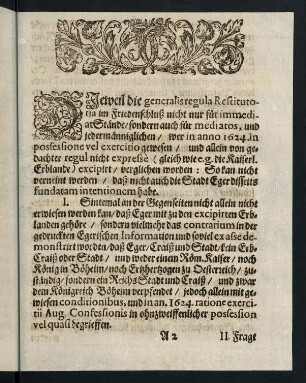 DIeweil die generalis regula Restituto-
ria im Friedenschluß nicht nur für immedi-
at Stände/ sondern auch für mediatos, und
jedermänniglichen/ wer in anno 1624. in
possessione vel exercitio gewesen/ und allein von ge-
dachter regul nicht expressè (gleich wie e.g. die Kaiserl.
Erblande) excipirt/ verglichen worden: So kan nicht
verneint werden/ daß nicht auch die Stadt Eger dißfalls
fundatam intentionem habe.
I. Sintemal an der Gegenseiten nicht allein nicht
erwiesen werden kan/ daß Eger mit zu den excipirten Erb-
landen gehöre/ sondern vielmehr das contrarium in der
gedruckten Egrischen Information und soviel exasse de-
monstrirt worden/ daß Eger/ Craiß und Stadt/ kein Erb-
Craiß oder Stadt/ und weder einem Röm. Kaiser/ noch
König in Böheim/ noch Ertzhertzogen zu Oesterreich/ zu-
ständig/ sondern ein Reichs Stadt und Craiß/ und zwar
dem Königreich Böheim verpfendet/ jedoch allein mit ge-
wiesen conditionibus, und in an. 1624. ratione exerci-
tii Aug. Confessionis in ohnzweiffenlicher possession
vel quasi begrieffen.
A 2 II. Frage